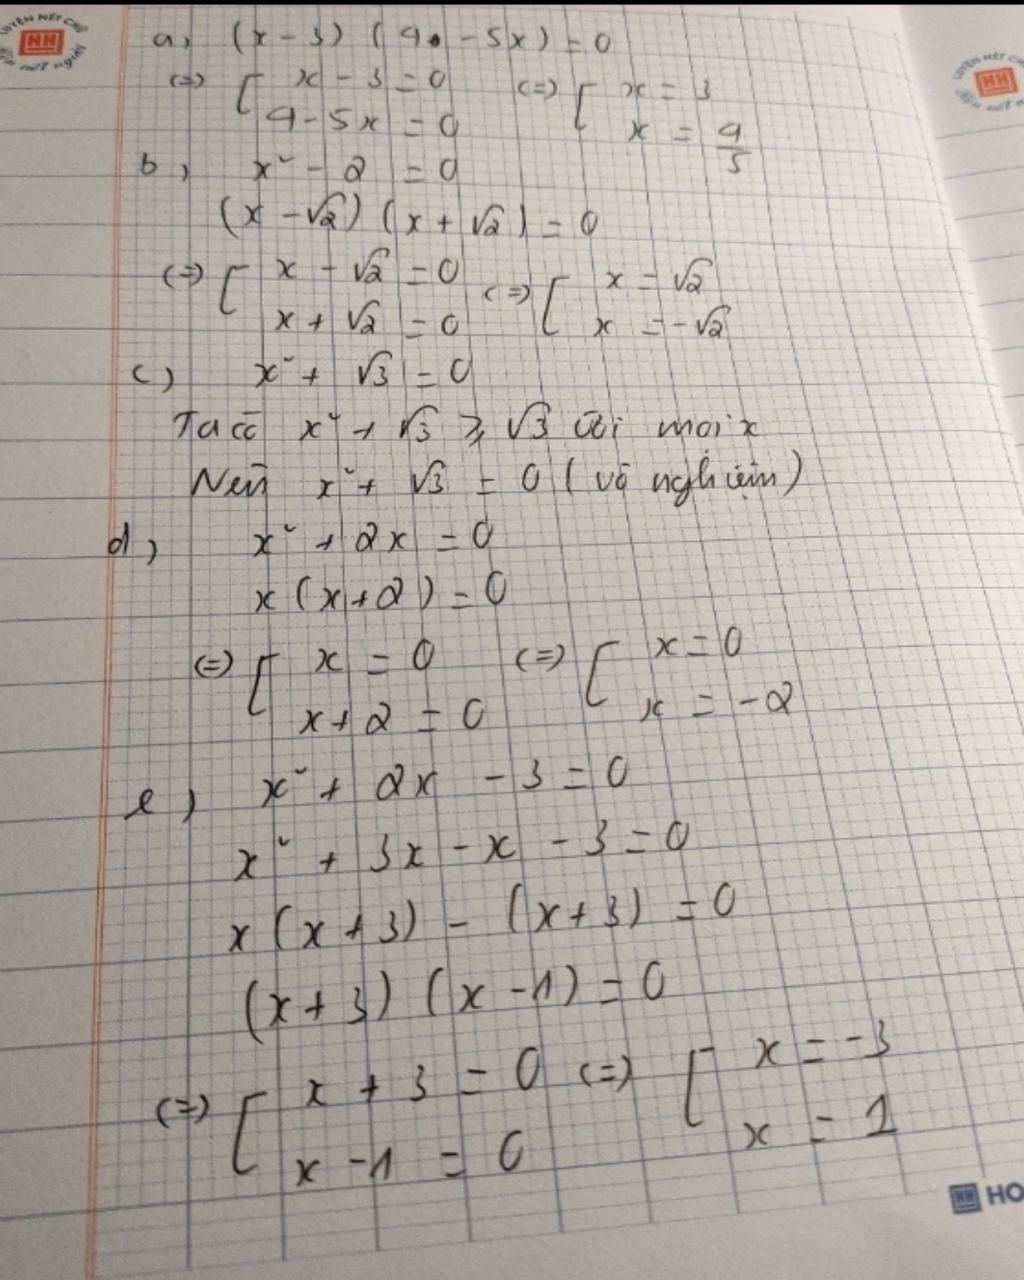 LUYỆN NÉT CHỮ
HH
a, (x - 3) (4 - 5x) = 0
(=) [ x - 3 = 0 (=) [ x = 3
4 - 5x = 0 x = 4/5
b, x² - 2 = 0
(x - √2) (x + √2) = 0
(=) [ x - √2 = 0 (=) [ x = √2
x + √2 = 0 x = -√2
c) x² + √3 = 0
Ta có x² + √3 ⩾ √3 với mọi x
Nên x² + √3 = 0 (vô nghiệm)
d, x² + 2x = 0
x (x + 2) = 0
(=) [ x = 0 (=) [ x = 0
x + 2 = 0 x = -2
e, x² + 2x - 3 = 0
x² + 3x - x - 3 = 0
x (x + 3) - (x + 3) = 0
(x + 3) (x - 1) = 0
(=) [ x + 3 = 0 (=) [ x = -3
x - 1 = 0 x = 1
HH HO